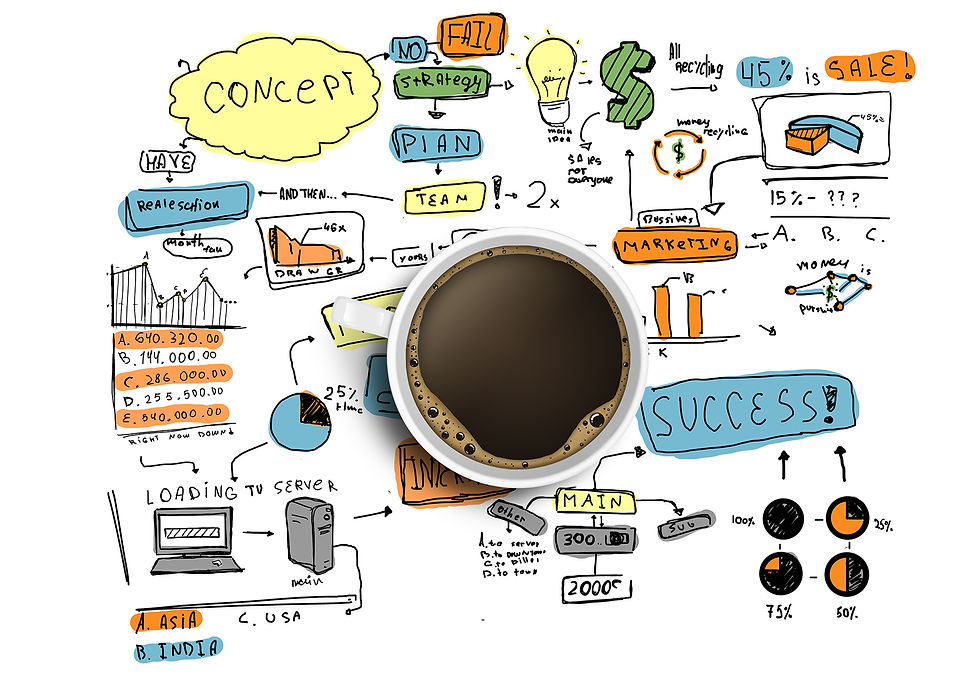 CONCEPT
NO
FAIL
STRATEGY
PLAN
TEAM
! → 2x
main
idea
SALES
not
everyone
All
RECYCLING
45% is SALE!
45%
money
recycling
15% - ???
A. B. C.
MARKETING
MONEY is
$
HAVE
REALESCHION
AND THEN...
month
46x
DRAW GR
years
A
C
A. 640.320.00
B. 144.000.00
C. 286.000.00
D. 255.500.00
E. 540.000.00
RIGHT NOW DOWN!
25%
time
VB
K
SUCCESS!
LOADING TV SERVER
main
MAIN
other
SUG
300..
2000
A. to server
C. to
D. to
100%
25%
75%
50%
A. ASIA
B. INDIA
C. USA